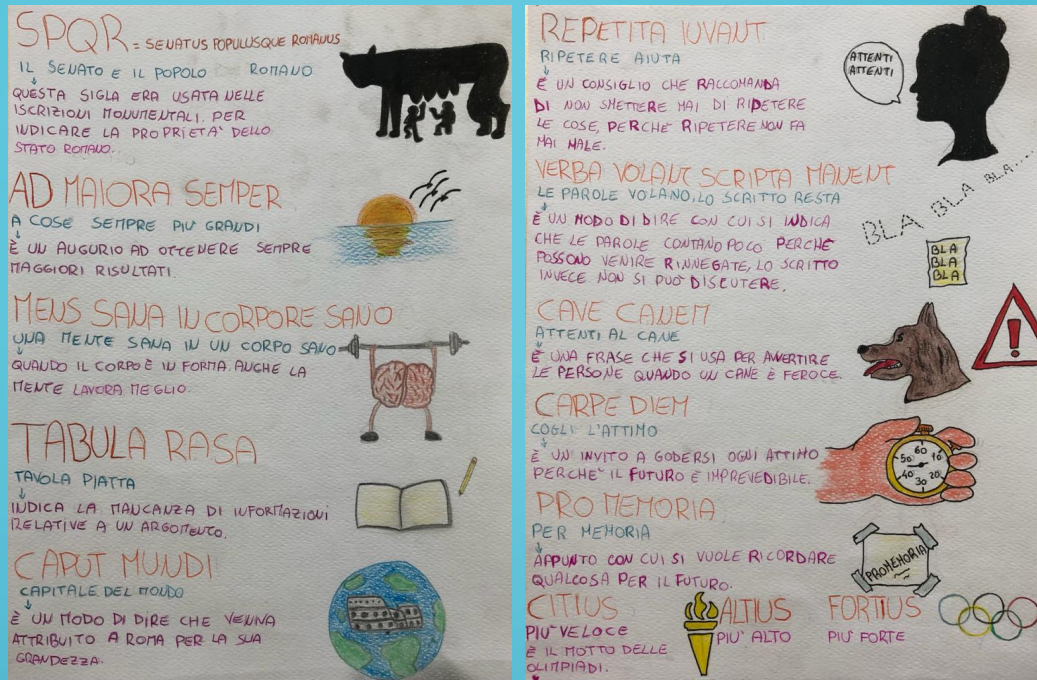 SPQR = SENATUS POPULUSQUE ROMANUS
IL SENATO E IL POPOLO ROMANO
QUESTA SIGLA ERA USATA NELLE
ISCRIZIONI MONUMENTALI. PER
INDICARE LA PROPRIETA' DELLO
STATO ROMANO.
AD MAIORA SEMPER
A COSE SEMPRE PIU' GRANDI
È UN AUGURIO AD OTTENERE SEMPRE
MAGGIORI RISULTATI.
MENS SANA IN CORPORE SANO
UNA MENTE SANA IN UN CORPO SANO
QUANDO IL CORPO È IN FORMA. ANCHE LA
MENTE LAVORA MEGLIO.
TABULA RASA
TAVOLA PIATTA
INDICA LA MANCANZA DI INFORMAZIONI
RELATIVE A UN ARGOMENTO.
CAPUT MUNDI
CAPITALE DEL MONDO
È UN MODO DI DIRE CHE VENIVA
ATTRIBUITO A ROMA PER LA SUA
GRANDEZZA.
REPETITA IUVANT
RIPETERE AIUTA
È UN CONSIGLIO CHE RACCOMANDA
DI NON SMETTERE MAI DI RIPETERE
LE COSE, PERCHÈ RIPETERE NON FA
MAI MALE.
ATTENTI
ATTENTI
VERBA VOLANT SCRIPTA MANENT
LE PAROLE VOLANO, LO SCRITTO RESTA
È UN MODO DI DIRE CON CUI SI INDICA
CHE LE PAROLE CONTANO POCO PERCHÈ
POSSONO VENIRE RINNEGATE, LO SCRITTO
INVECE NON SI PUO' DISCUTERE.
BLA BLA BLA....
BLA
BLA
BLA
CAVE CANEM
ATTENTI AL CANE
È UNA FRASE CHE SI USA PER AVVERTIRE
LE PERSONE QUANDO UN CANE È FEROCE.
!
CARPE DIEM
COGLI L'ATTIMO
È UN INVITO A GODERSI OGNI ATTIMO
PERCHE' IL FUTURO È IMPREVEDIBILE.
60
50 10
40 20
30
PRO MEMORIA
PER MEMORIA
APPUNTO CON CUI SI VUOLE RICORDARE
QUALCOSA PER IL FUTURO.
PROMEMORIA
CITIUS ALTIUS FORTIUS
PIU' VELOCE PIU' ALTO PIU' FORTE
È IL MOTTO DELLE
OLIMPIADI.